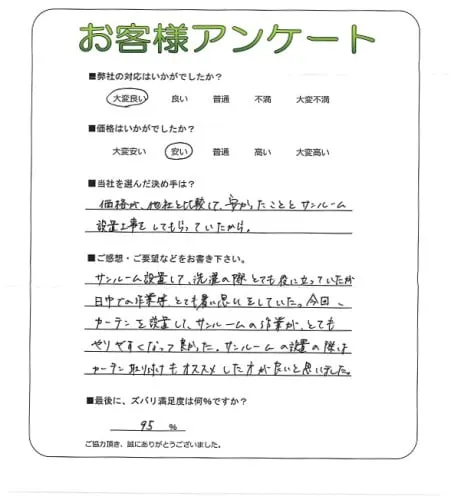 お客様アンケート
■弊社の対応はいかがでしたか？
大変良い 良い 普通 不満 大変不満
■価格はいかがでしたか？
大変安い 安い 普通 高い 大変高い
■当社を選んだ決め手は？
価格が、他社と比較して、安かったこととサンルーム
設置工事をしてもらっていたから。
■ご感想・ご要望などをお書き下さい。
サンルーム設置して、洗濯の際とても役に立っていたが
日中での作業時、とても暑い思いをしていた。今回、
カーテンを設置して、サンルームの作業が、とても
やりやすくなって良かった。サンルームの設置の際は
カーテン取り付けもオススメした方がよいと思いました。
■最後に、ズバリ満足度は何%ですか？
95 %
ご協力頂き、誠にありがとうございました。